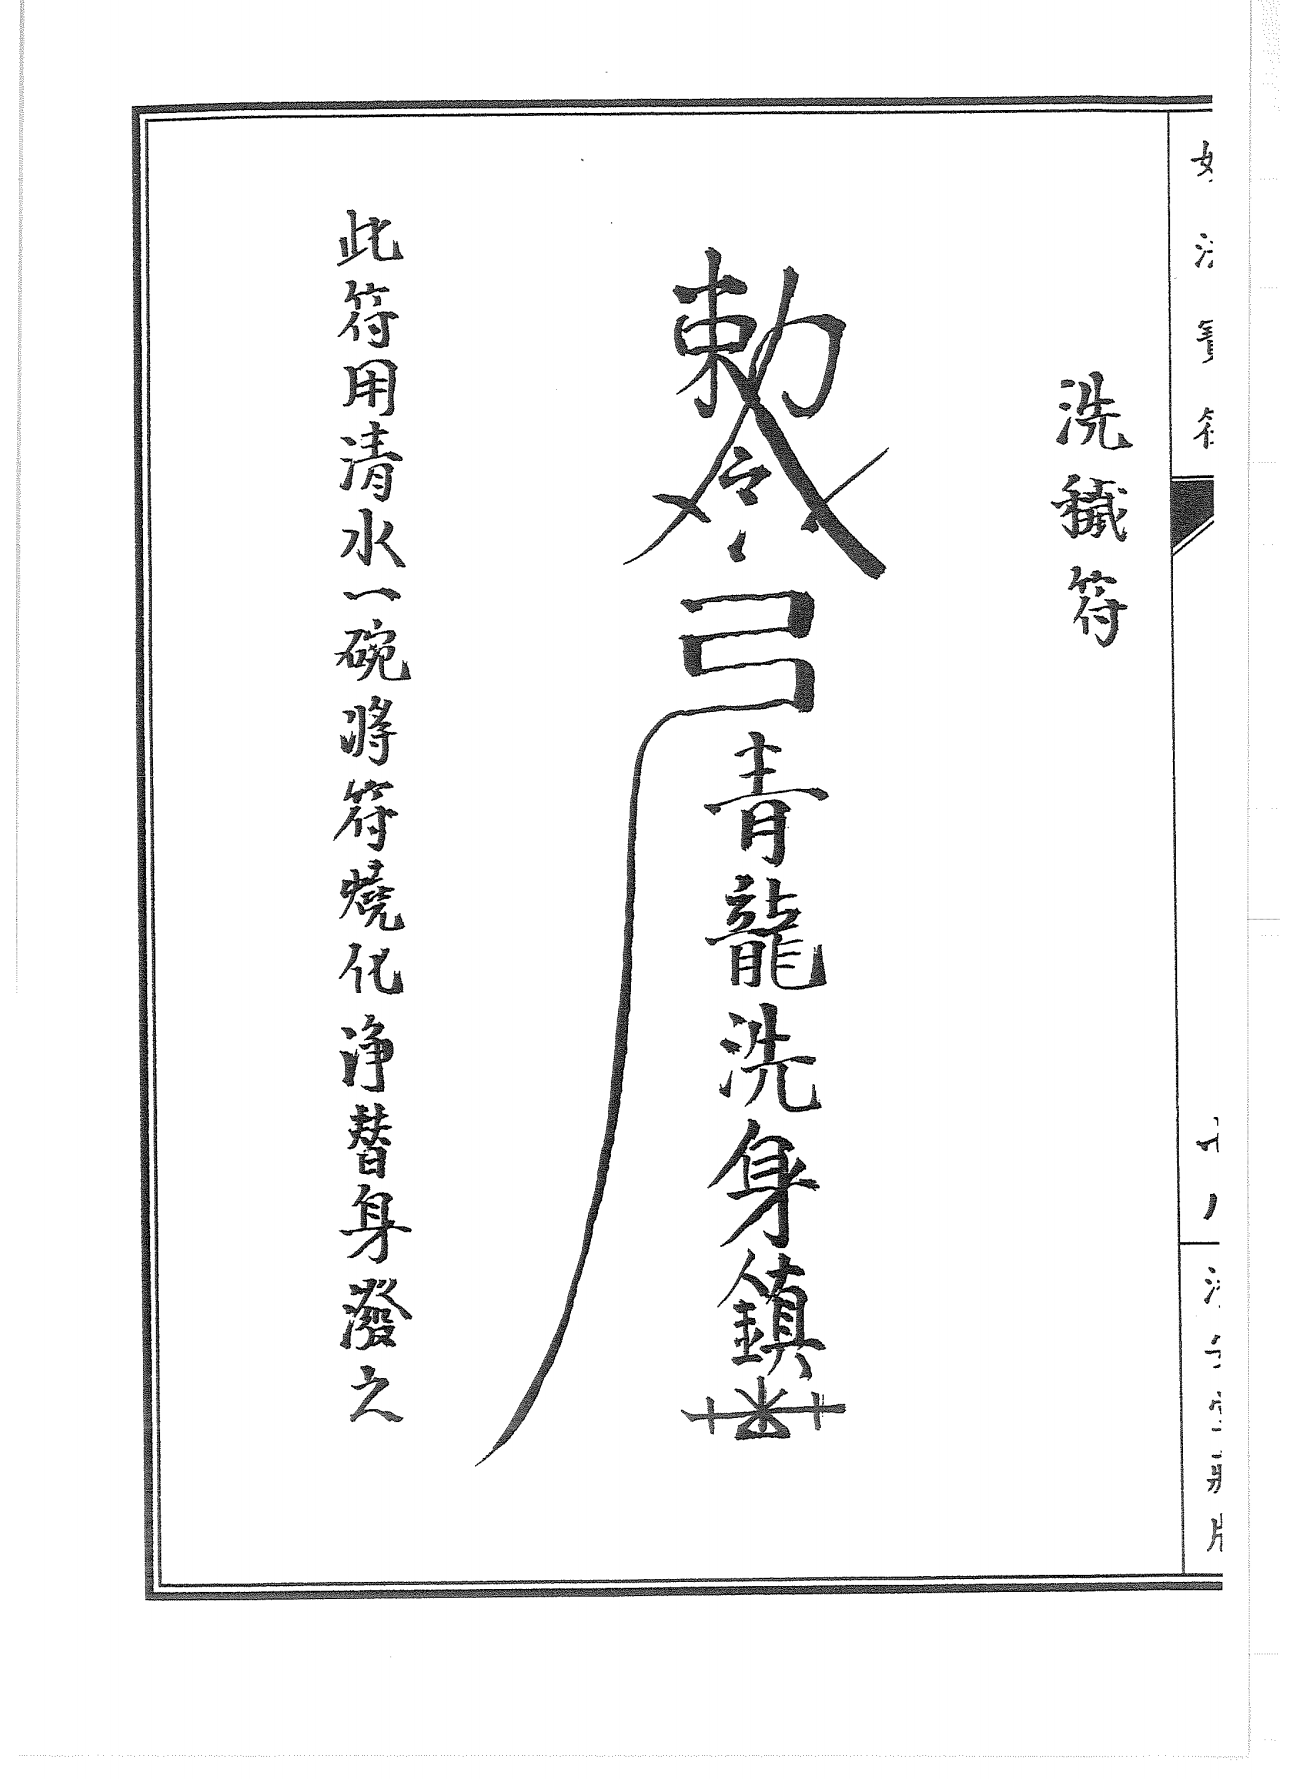 洗穢符
勅令弓青龍洗身鎮
此符用清水一碗將符燒化淨替身潑之